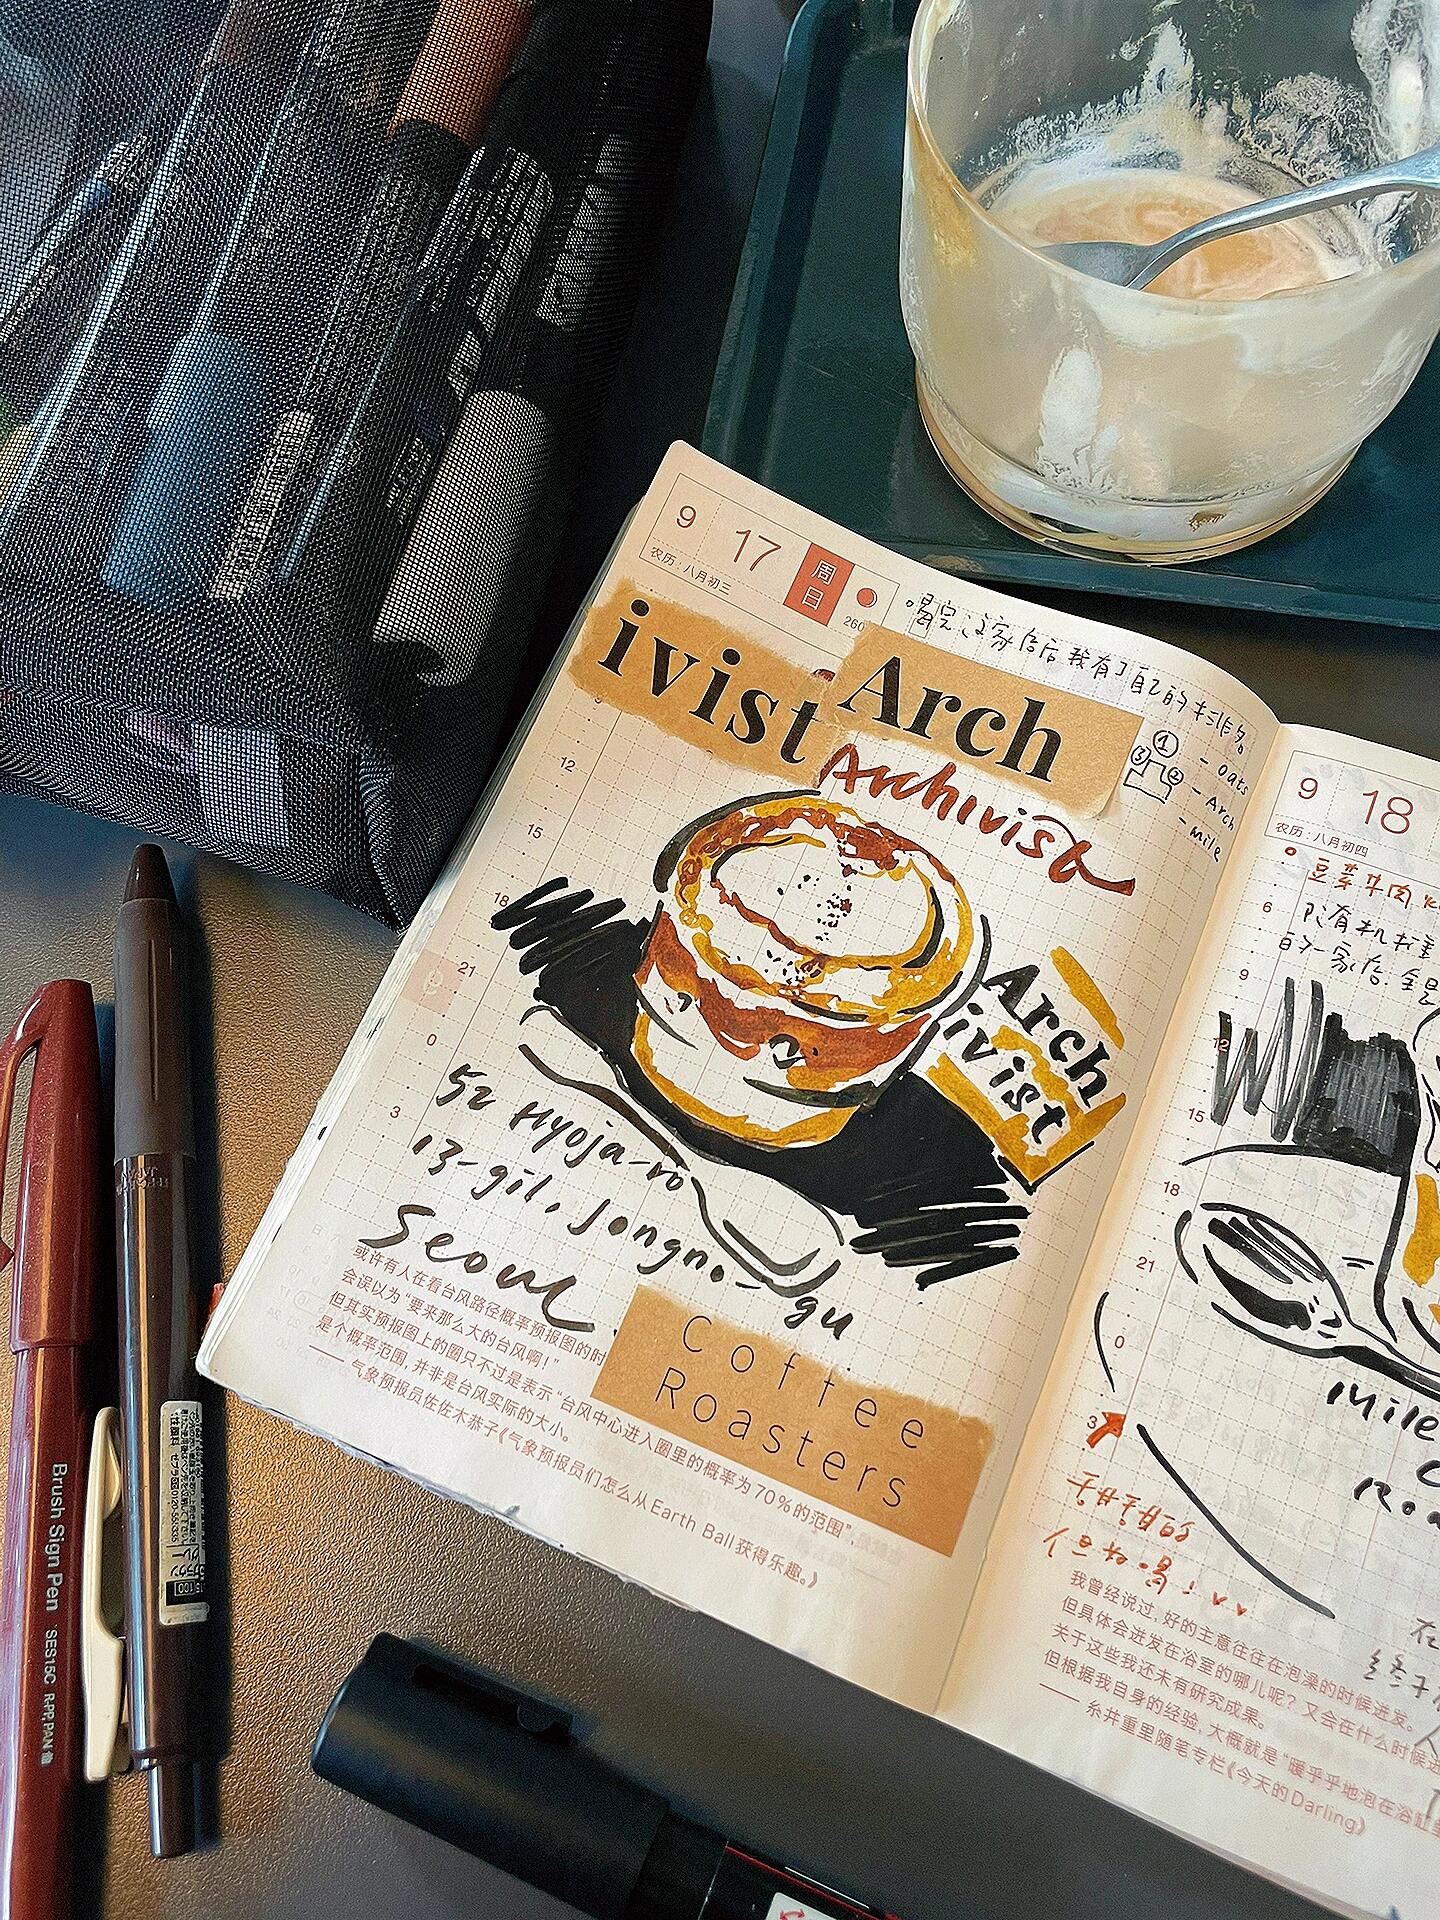 9 17 周日
农历:八月初三
260
喝完这家店后我有了自己的排名
ivist Arch
Archivist
① ② ③
- oats
- Arch
- mile
12
15
18
21
0
3
Arch
ivist
52 Hyoja-ro
13-gil, Jongno-gu
Seoul.
Coffee
Roasters
或许有人在看台风路径概率预报图的时
会误以为“要来那么大的台风啊!”
但其实预报图上的圈只不过是表示“台风中心进入圈里的概率为70%的范围”,
是个概率范围,并非是台风实际的大小。
——气象预报员佐佐木恭子《气象预报员们怎么从Earth Ball获得乐趣。》
9 18
农历:八月初四
豆芽牛肉
6
9
12
15
18
21
0
3
mile
我曾经说过,好的主意往往在泡澡的时候迸发。
但具体会迸发在浴室的哪儿呢?又会在什么时候迸
关于这些我还未有研究成果。
但根据我自身的经验,大概就是“暖乎乎地泡在浴缸里
——糸井重里随笔专栏《今天的Darling》
Brush Sign Pen SES15C R.PP,PAN